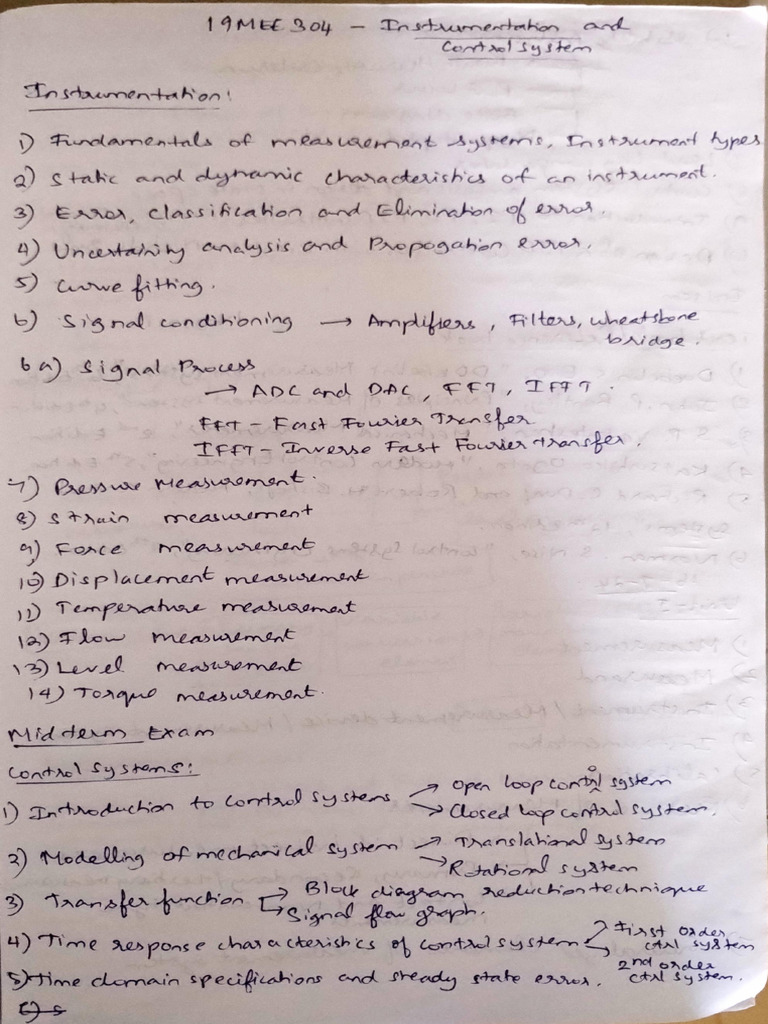 19MEE304 - Instrumentation and
Control System
Instrumentation:
1) Fundamentals of measurement systems, Instrument types
2) Static and dynamic characteristics of an instrument.
3) Error, classification and Elimination of error.
4) Uncertainity analysis and Propogation error.
5) Curve fitting.
6) Signal conditioning → Amplifiers, Filters, wheatstone
bridge.
6a) Signal Process
→ ADC and DAC, FFT, IFFT.
FFT - Fast Fourier Transfer
IFFT - Inverse Fast Fourier transfer.
7) Pressure Measurement.
8) Strain measurement
9) Force measurement
10) Displacement measurement
11) Temperature measurement
12) Flow measurement
13) Level measurement
14) Torque measurement.
Midterm Exam
Control Systems:
1) Introduction to control systems → Open loop control system
→ Closed loop control system.
2) Modelling of mechanical system → Translational system
→ Rotational system
3) Transfer function → Block diagram reduction technique
→ Signal flow graph.
4) Time response characteristics of control system → First order
ctrl system
→ 2nd order
ctrl system.
5) Time domain specifications and steady state error.